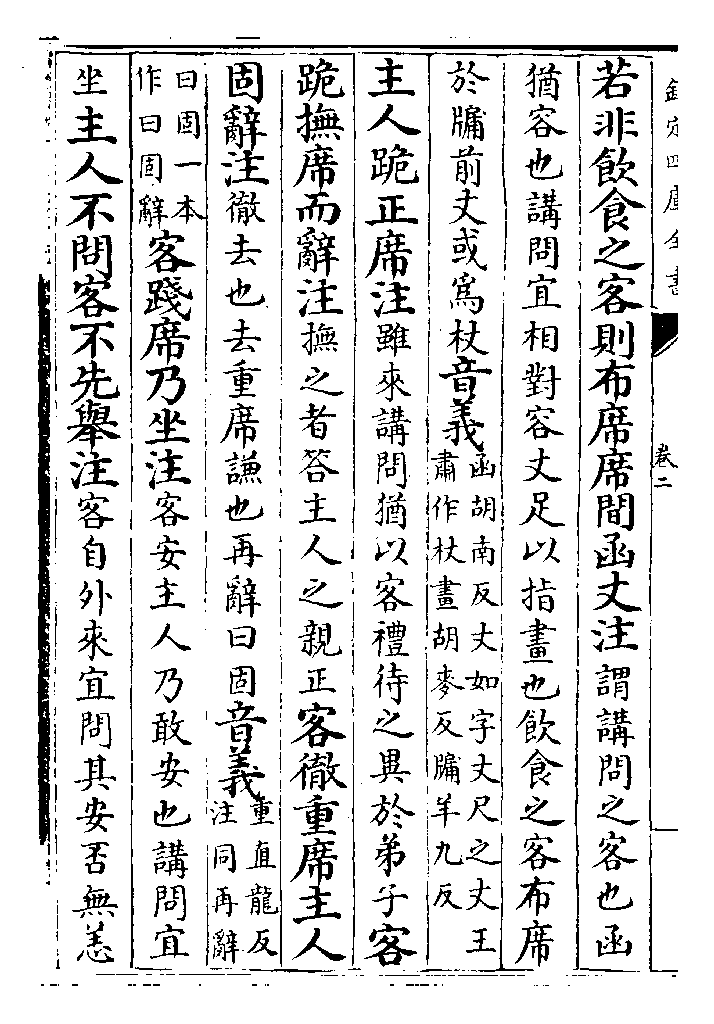 欽定四庫全書
卷二
若非飲食之客則布席席間函丈注謂講問之客也函
猶容也講問宜相對容丈足以指畫也飲食之客布席
於牖前丈或爲杖音義函胡南反丈如字丈尺之丈王肅作杖畫胡麥反牖羊九反
主人跪正席注雖來講問猶以客禮待之異於弟子客
跪撫席而辭注撫之者答主人之親正客徹重席主人
固辭注徹去也去重席謙也再辭曰固音義重直龍反注同再辭
曰固一本作曰固辭客踐席乃坐注客安主人乃敢安也講問宜
坐主人不問客不先舉注客自外來宜問其安否無恙